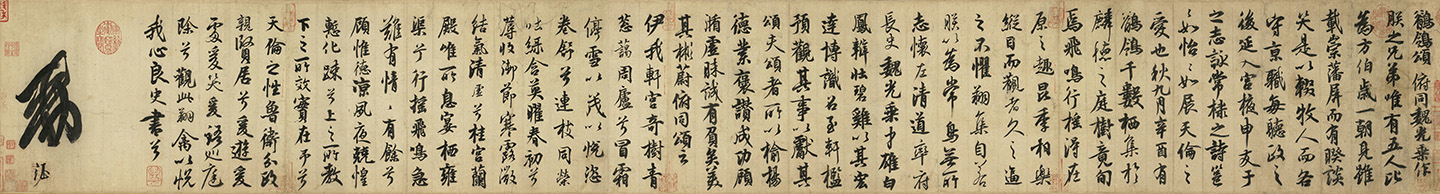 鶺鴒頌 俯同魏光乘作
朕之兄弟唯有五人比
為方伯歲一朝見雖
載崇藩屏而有睽談
笑是以輟牧人而各
守京職每聽政之
後延入宮掖申友于
之志詠常棣之詩邕
邕如怡怡如展天倫之
愛也秋九月辛酉有
鶺鴒千數栖集於
麟德之庭樹竟旬
焉飛鳴行搖得在
原之趣昆季相樂
縱目而觀者久之逼
之不懼翔集自若
朕以為常鳥無所
志懷左清道率府
長史魏光乘才雄白
鳳辯壯碧雞以其宏
達博識召至軒檻
預觀其事以獻其
頌夫頌者所以揄揚
德業褒讚成功顧
循虛昧誠有負矣美
其彬蔚俯同頌云
伊我軒宮奇樹青
蔥藹周廬兮冒霜
停雪以茂以悅恣
卷舒兮連枝同榮
吐綠含英曜春初兮
蓐收御節寒露微
結氣清虛兮桂宮蘭
殿唯所息宴栖雍
渠兮行搖飛鳴急
難有情情有餘兮
顧惟德涼夙夜兢惶
慙化疎兮上之所教
下之所效實在予兮
天倫之性魯衛分政
親賢居兮爰遊爰
處爰笑爰語巡庭
除兮觀此翔禽以悅
我心良史書兮
敕